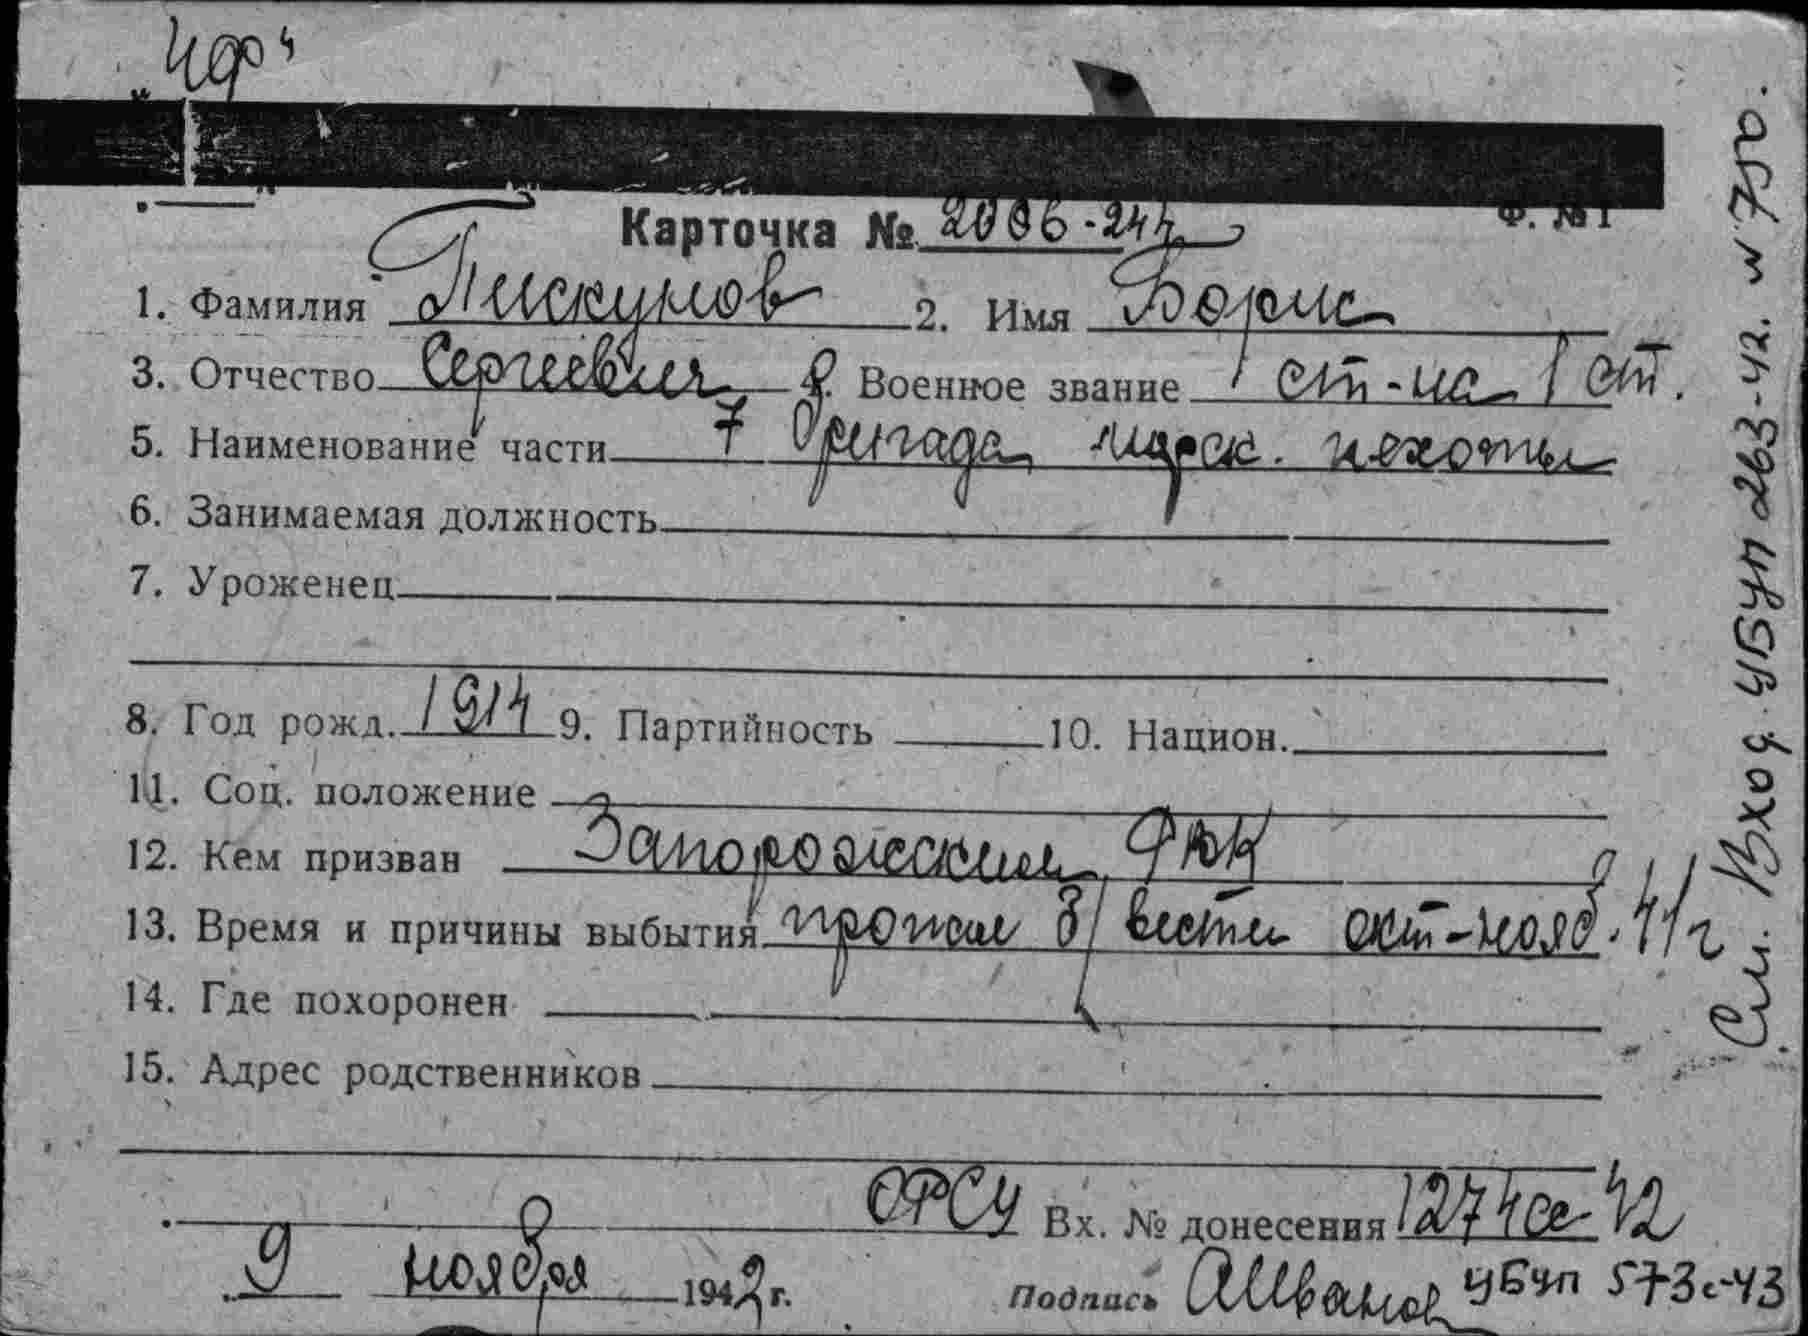 "ЧФ"
Ф. №1
Карточка № 2006-244
1. Фамилия Пискунов 2. Имя Борис
3. Отчество Сергеевич Военное звание ст-на 1 ст.
5. Наименование части 7 бригада морск. пехоты
6. Занимаемая должность
7. Уроженец
8. Год рожд. 1914 9. Партийность 10. Национ.
11. Соц. положение
12. Кем призван Запорожским РВК
13. Время и причины выбытия пропал б/вести окт-нояб. 41г
14. Где похоронен
15. Адрес родственников
ОРСУ Вх. № донесения 1274сс-42
9 ноября 1942 г. Подпись АИванов УБУП 573с-43
См. Вход. УБУП 263-42. № 750.